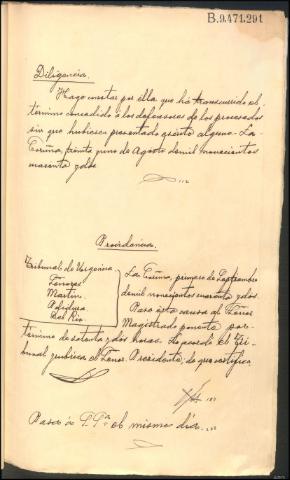 B.9.471.291
Diligencia.
Hago constar por ella, que ha transcurrido el
término concedido a los defensores de los procesados
sin que hubiesen presentado escrito alguno. La
Coruña, treinta y uno de Agosto de mil novecientos
cuarenta y dos.
Providencia.
Tribunal de Urgencia
Señores
Martin
Del Rio
La Coruña, primero de Septiembre
de mil novecientos cuarenta y dos.
Pase esta causa al Señor
Magistrado ponente por
término de setenta y dos horas. Lo acordó el Tri-
bunal y rubrica el Señor Presidente; de que certifico
Pasa a S.Sª el mismo día.